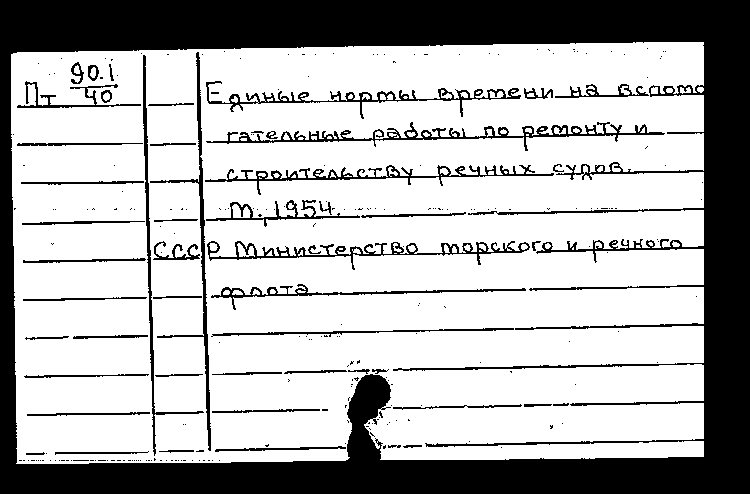 Пт 90.1/40
Единые нормы времени на вспомо
гательные работы по ремонту и
строительству речных судов.
М., 1954.
СССР Министерство морского и речного
флота